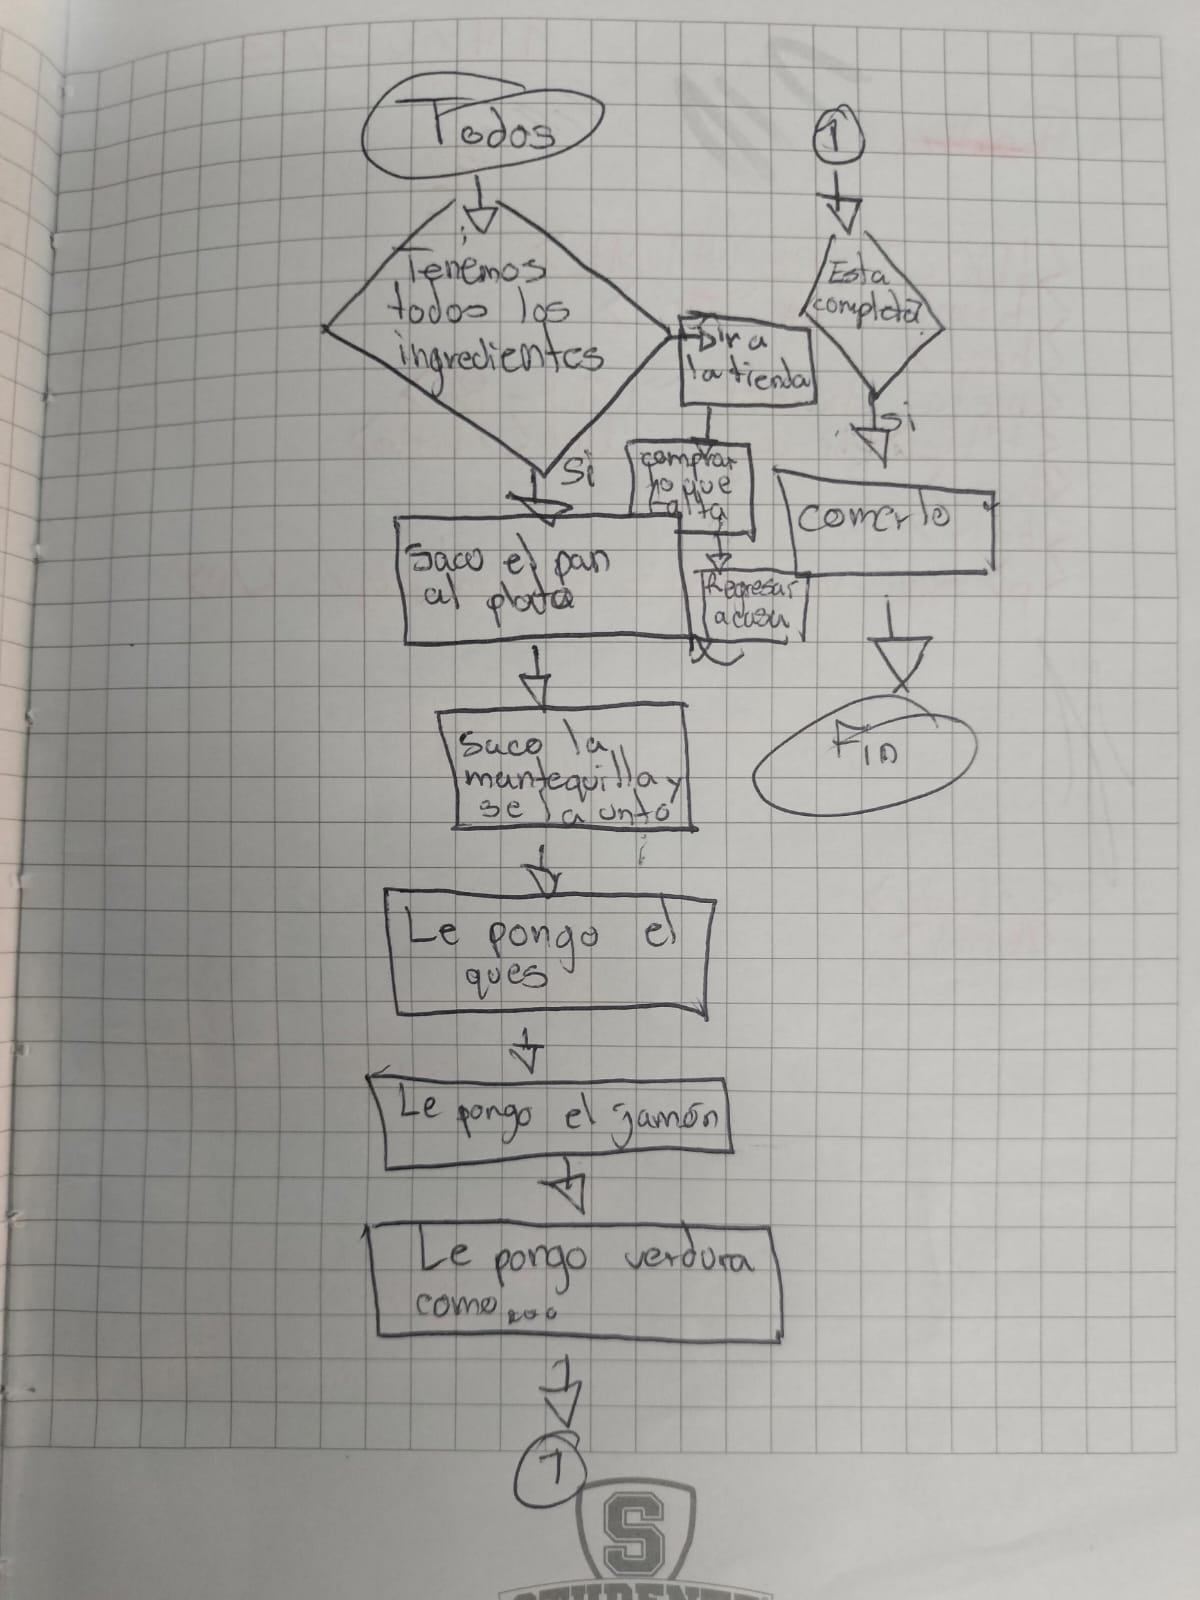 Todos
¿
Tenemos
todos los
ingredientes
Si
Ir a
la tienda
comprar
lo que
falta
Regresar
a casa
Saco el pan
al plato
Saco la
mantequilla y
se la unto
Le pongo el
ques
Le pongo el jamón
Le pongo verdura
como...
1
1
Esta
completa?
Si
comerlo
Fin
S
STUDENTS